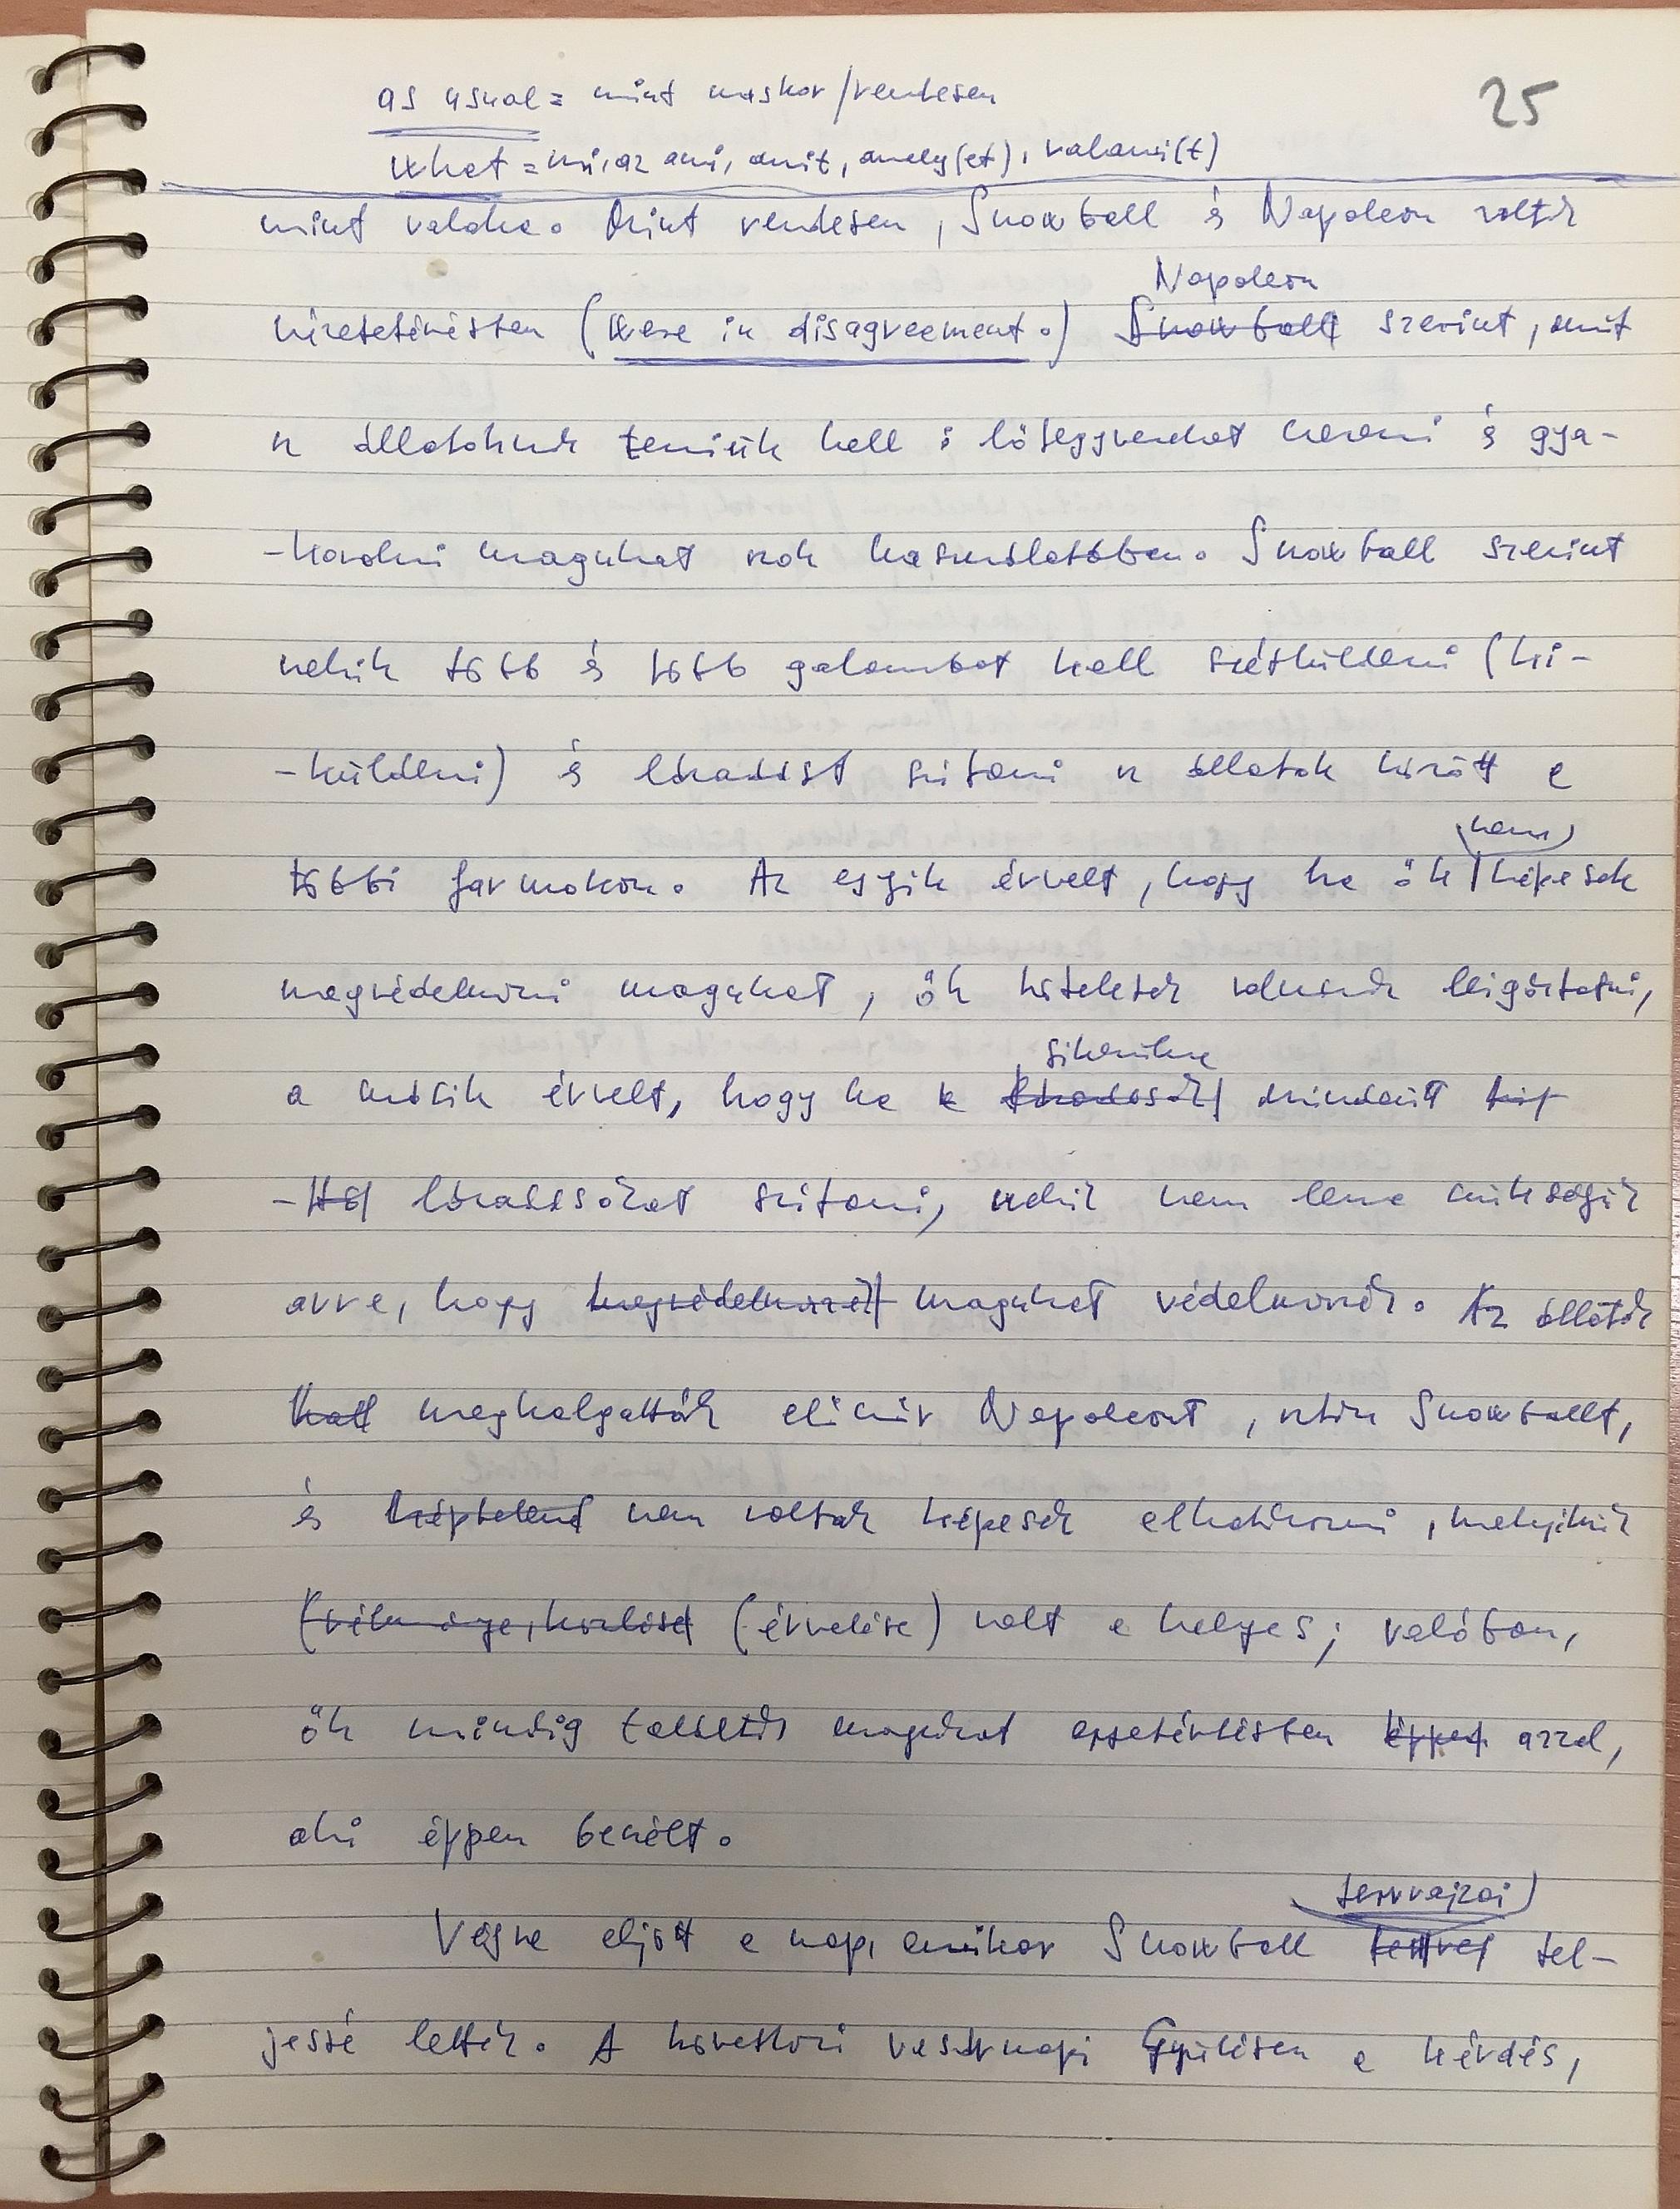 25
as usual = mint máskor/rendesen
what = mi, az ami, amit, amely(et), valami(t)
mint valaha. Mint rendesen, Snowball és Napoleon voltak
nézeteltérésben (were in disagreement.) Snowball Napoleon szerint, amit
az állatoknak tenniük kell : lőfegyvereket szerezni és gya-
-korolni magukat azok használatában. Snowball szerint
nekik több és több galambot kell szétküldeni (ki-
-küldeni) és lázadást szítani az állatok között a
többi farmokon. Az egyik érvelt, hogy ha ők (nem) képesek
megvédelmezni magukat, ők kötelesek lennének leigázatni,
a másik érvelt, hogy ha a lázadások sikerülne mindenütt
lázadásokat szítani, nekik nem lenne szükségük
arra, hogy megvédelmezzék magukat védelmezzék. Az állatok
hall meghallgatták először Napoleont, aztán Snowballt,
és képtelenek nem voltak képesek elhatározni, melyiknek
(véleménye, közlése) (érvelése) volt a helyes; valóban,
ők mindig találták magukat egyetértésben éppen azzal,
aki éppen beszélt.
Végre eljött a nap, amikor Snowball tervei tervrajzai tel-
jessé lettek. A következő vasárnapi Gyűlésen a kérdés,